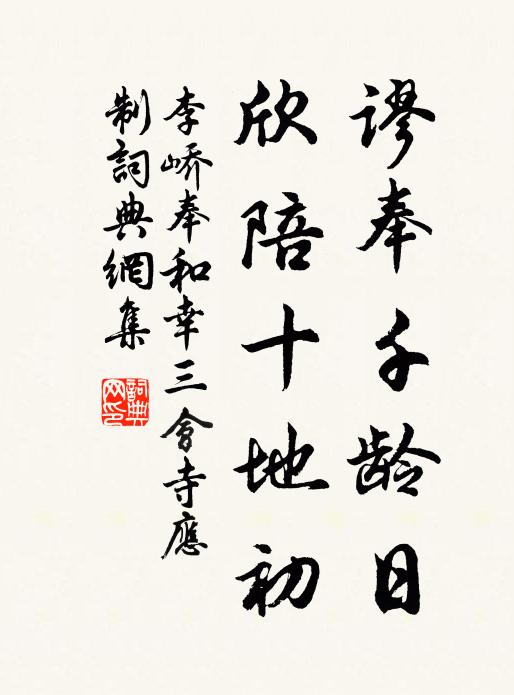 谬奉千龄日
欣陪十地初
李嶠奉和幸三會寺應
制詞典網集
詞典
网印